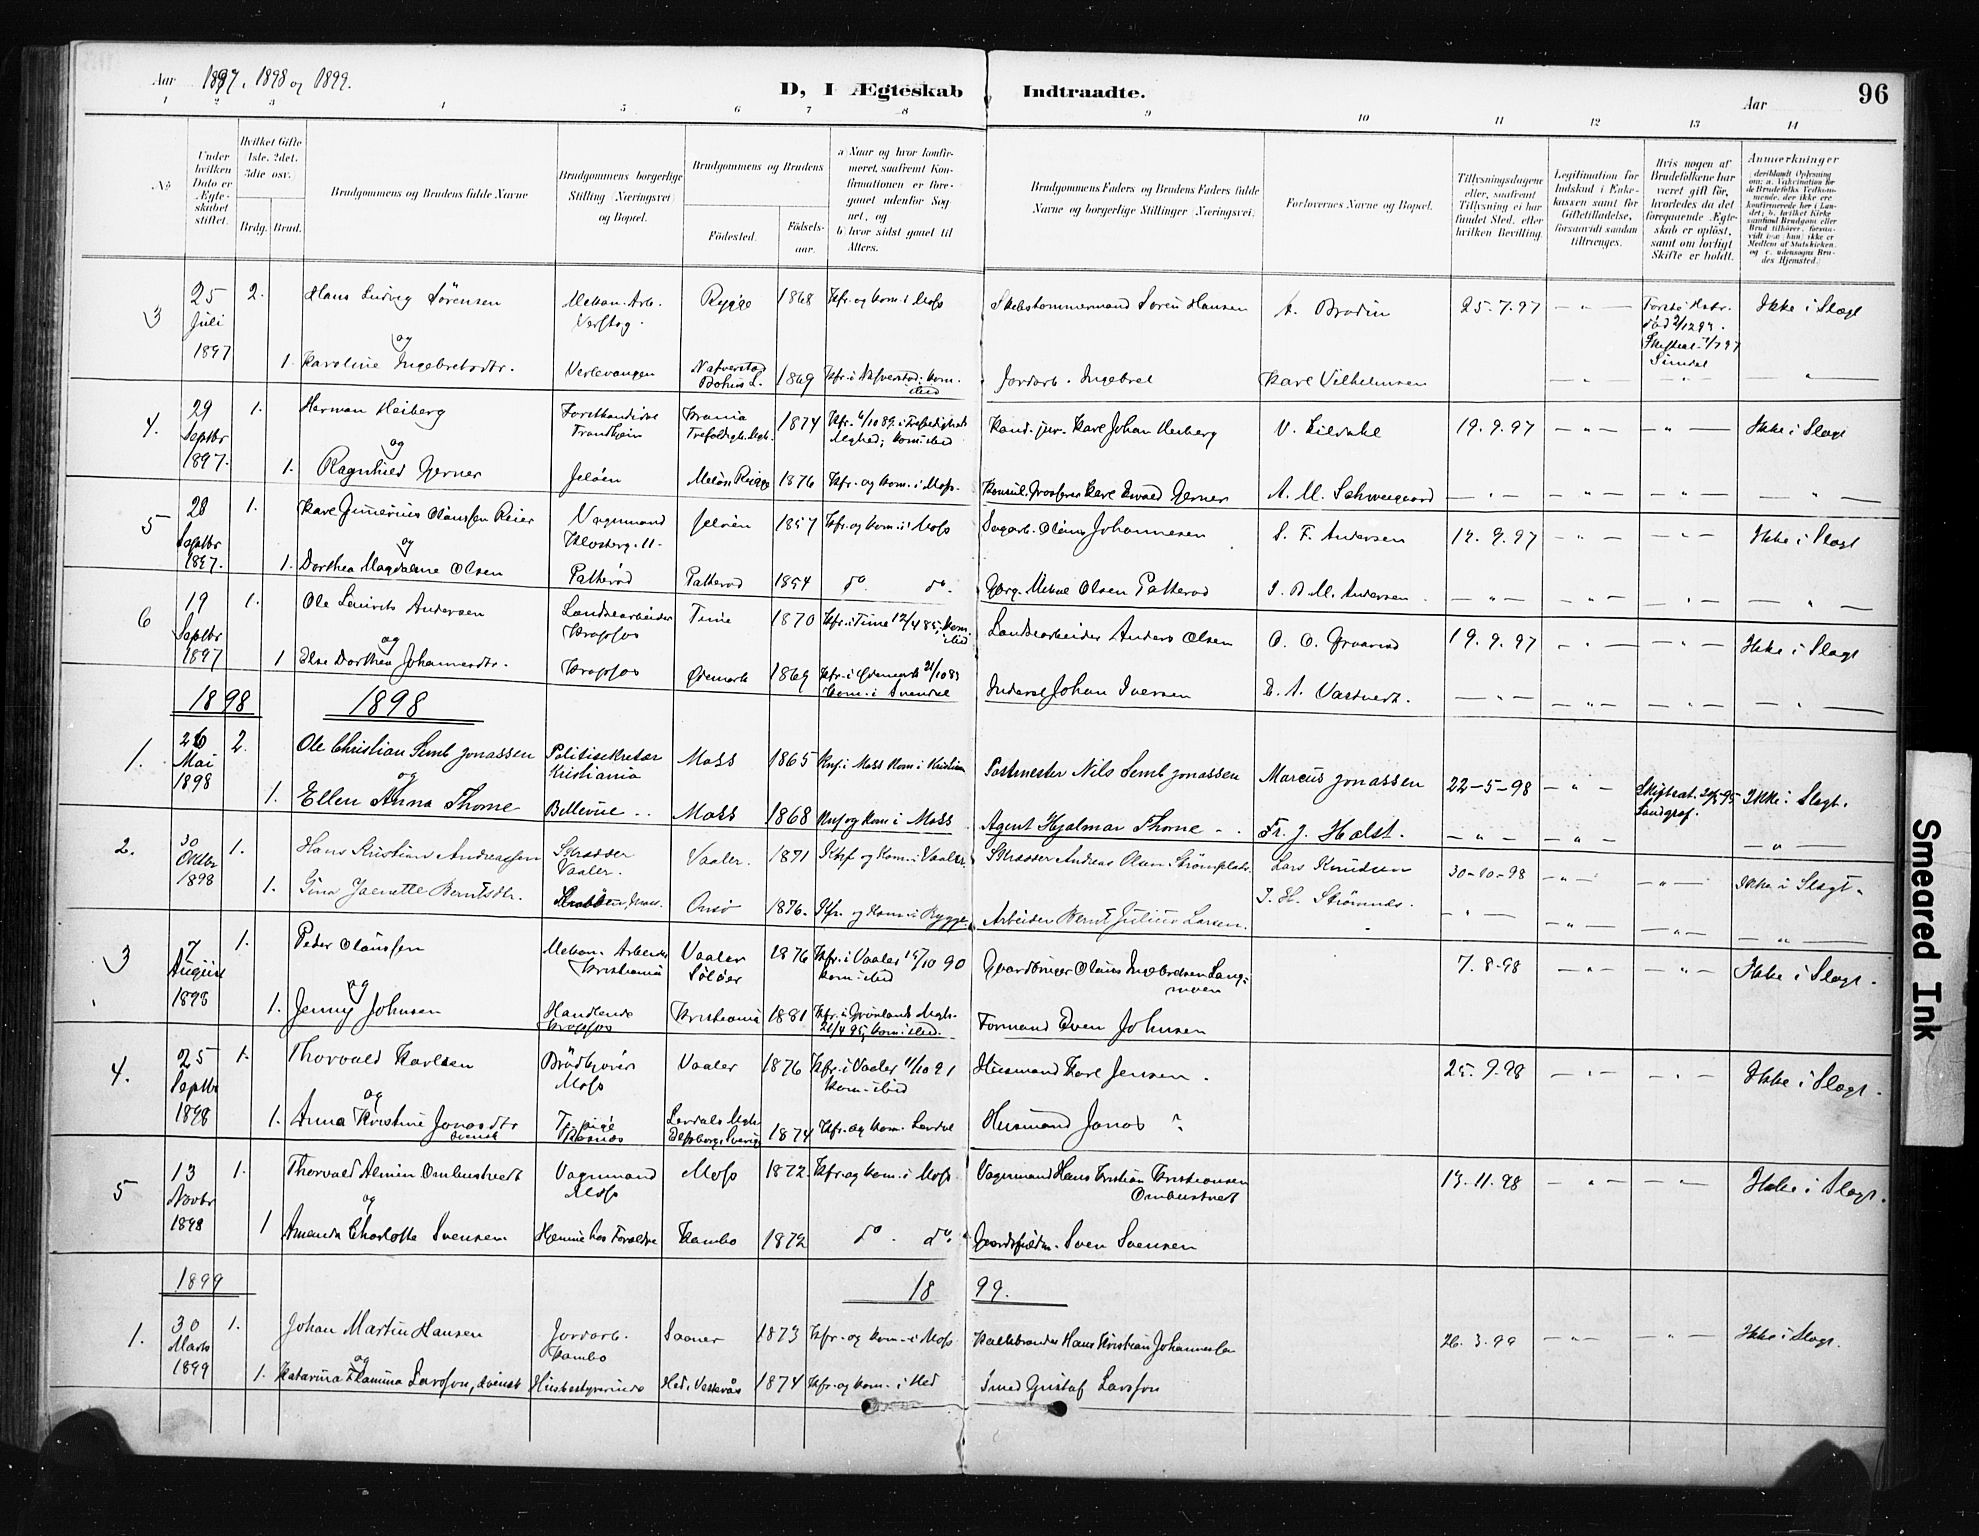 Aar 1897, 1898 og 1899.
D, I Ægteskab Indtraadte.
Aar
96
1 2 3 4 5 6 7 8 9 10 11 12 13 14
No
Under hvilken Dato er Ægteskabet stiftet.
Hvilket Gifte 1ste, 2det, 3die osv.
Brdg. Brud.
Brudgommens og Brudens fulde Navne
Brudgommens borgerlige Stilling (Næringsvei) og Bopæl.
Brudgommens og Brudens
Fødested. Fødselsaar.
a) Naar og hvor konfirmeret, saafremt Konfirmationen er foregaaet udenfor Sognet, og
b) hvor sidst gaaet til Alters.
Brudgommens Faders og Brudens Faders fulde Navne og borgerlige Stillinger (Næringsvei).
Forlovernes Navne og Bopæl.
Tillysningsdagene eller, saafremt Tillysning ei har fundet Sted, efter hvilken Bevilling.
Legitimation for Indskud i Enkekassen samt for Giftetilladelse, forsaavidt saadan tiltrænges.
Hvis nogen af Brudefolkene har været gift før, hvorledes da det foregaaende Ægteskab er opløst, samt om lovligt Skifte er holdt.
Anmærkninger (deriblandt Oplysning om: a. Vakcination for de Brudefolks Vedkommende, der ikke ere konfirmerede her i Landet; b. hvilket Kirkesamfund Brudgom eller Brud tilhører, forsaavidt han (hun) ikke er Medlem af Statskirken, og c. udensogns Brudes Hjemsted.)
3 25 Juli 1897 2. Hans Ludvig Sørensen Mekan. Arb. Rygge 1868 Kfr. og kom. i Moss Skibstømmermand Søren Hansen A. Brodin 25.7.97 — " — Ikke i Slægt
og
1. Karoline Ingebretsdtr. Verlevangen Nafverstad Bohus L. 1869 Kfr. i Nafverstad; kom. ibid Jordarb. Ingebret Karl Vilhelmsen — " —
4. 29 Septbr 1897. 1. Herman Heiberg Forstkandidat Trondhjem Krania Trefoldigh. Mgh. 1874 Kand. jur. Karl Johan Heiberg V. Lildahl 19.9.97 — " — Ikke i Slægt
og
1. Ragnhild Gerner Jeløen Moss 1876 Kfr. og kom. i Moss. Konsul, Karl Evald Gerner A. M. Schweigaard — " —
5 28 Septbr 1897. 1. Karl Olaussen Reier Vognmand Klosterg. 11. Jeløen 1857 Kfr. og kom. i Moss Sagarb. Olaus Johannesen S. F. Andersen 12.9.97 — " — Ikke i Slægt
og
1. Dorthea Magdalene Olsen Patterød Patterød 1854 do. do. Olsen Patterød I. B. M. Andersen — " —
6 19 Septbr 1897 1. Ole Laurits Andersen Landsearbeider Kropsfos Time 1870 Kfr. i Time 12/4 85; kom. ibid Landsearbeider Anders Olsen O. O. 19.9.97 — " — Ikke i Slægt
og
1 Else Dorthea Johannesdtr. Kropsfos Ødemark 1869 Kfr. i Ødemark 21/10 83 kom. i Svendal Inderst Johan Iversen E. A. Vastvedt. — " —
1898 1898
1. 26 Mai 1898 2. Ole Christian Semb Jonassen Politisekretær Kristiania Moss 1865 Knf i Moss Kom i Kristian Postmester Nils Semb Jonassen Marcus Jonassen 22-5-98 — " — Skifteat. Landgraf. Ikke i Slægt.
og
1. Ellen Anna Thorne Bellevue Moss 1868 Knf og kom i Moss Agent Hjalmar Thorne Fr. J. Holst. — " —
2. 30 Oktbr 1898 1. Hans Kristian Andreassen Skrædder Vaaler. Vaaler. 1871 Kfr og kom. i Vaaler. Skrædder Andreas Olsen Lars Knudsen 30-10-98 — " — Ikke i Slægt.
1. Gina Jaenette Berntsdtr. Onsø 1876. Kfr. og Kom. i Rygge. Arbeider Bernt Julius Larsen. I. H. Strømnes. — " —
3 7 August 1898 1. Peder Olaussen Mekan. Arbeider Kristiania Vaaler Soløer 1876 Kfr. i Vaaler 15/10 90 kom. ibid Gaardbruger Olaus Ingebretsen Langmoen 7.8.98 — " — Ikke i Slægt.
og
1. Jenny Johnsen Handlende Kropsfos Kristiania 1881 Kfr. i Grønlands Mgh. 21/4 95, kom. ibid. Formand Even Johnsen
4. 25 Septbr 1898 1. Thorvald Karlsen Brødkjører Moss Vaaler 1876 Kfr. i Vaaler 4/10 91 kom. ibid Husmand Karl Jensen. 25.9.98 — " — Ikke i Slægt.
og
1. Anna Kristine Jonasdtr svensk Tj. pige Kasnes 1874 Kfr. og kom. Husmand Jonas ?
5 13 Novbr 1898 1. Thorvald Armin Ombustvedt Vognmand Moss Moss 1872. Kfr. og kom. i Moss. Vognmand Hans Kristian Kristiansen Ombustvedt 13.11.98 — " — Ikke i Slægt.
og
1 Amanda Charlotte Svensen Hjemme hos Forældre Kambo 1872 do. do. Sven Svensen
1899 1899.
1. 30 Marts 1899 1. Johan Martin Hansen Jordarb. Kambo Saaner 1873 Kfr. og kom. i Moss. Kalkbrænder Hans Kristian Johannessen 26.3.99 — " — Ikke i Slægt.
og
1. Katarina Flamina Larsson, svensk Husbestyrerinde Hed, Vestrås 1874 Kfr. og kom. i Hed Smed Gustaf Larsson
Smeared Ink